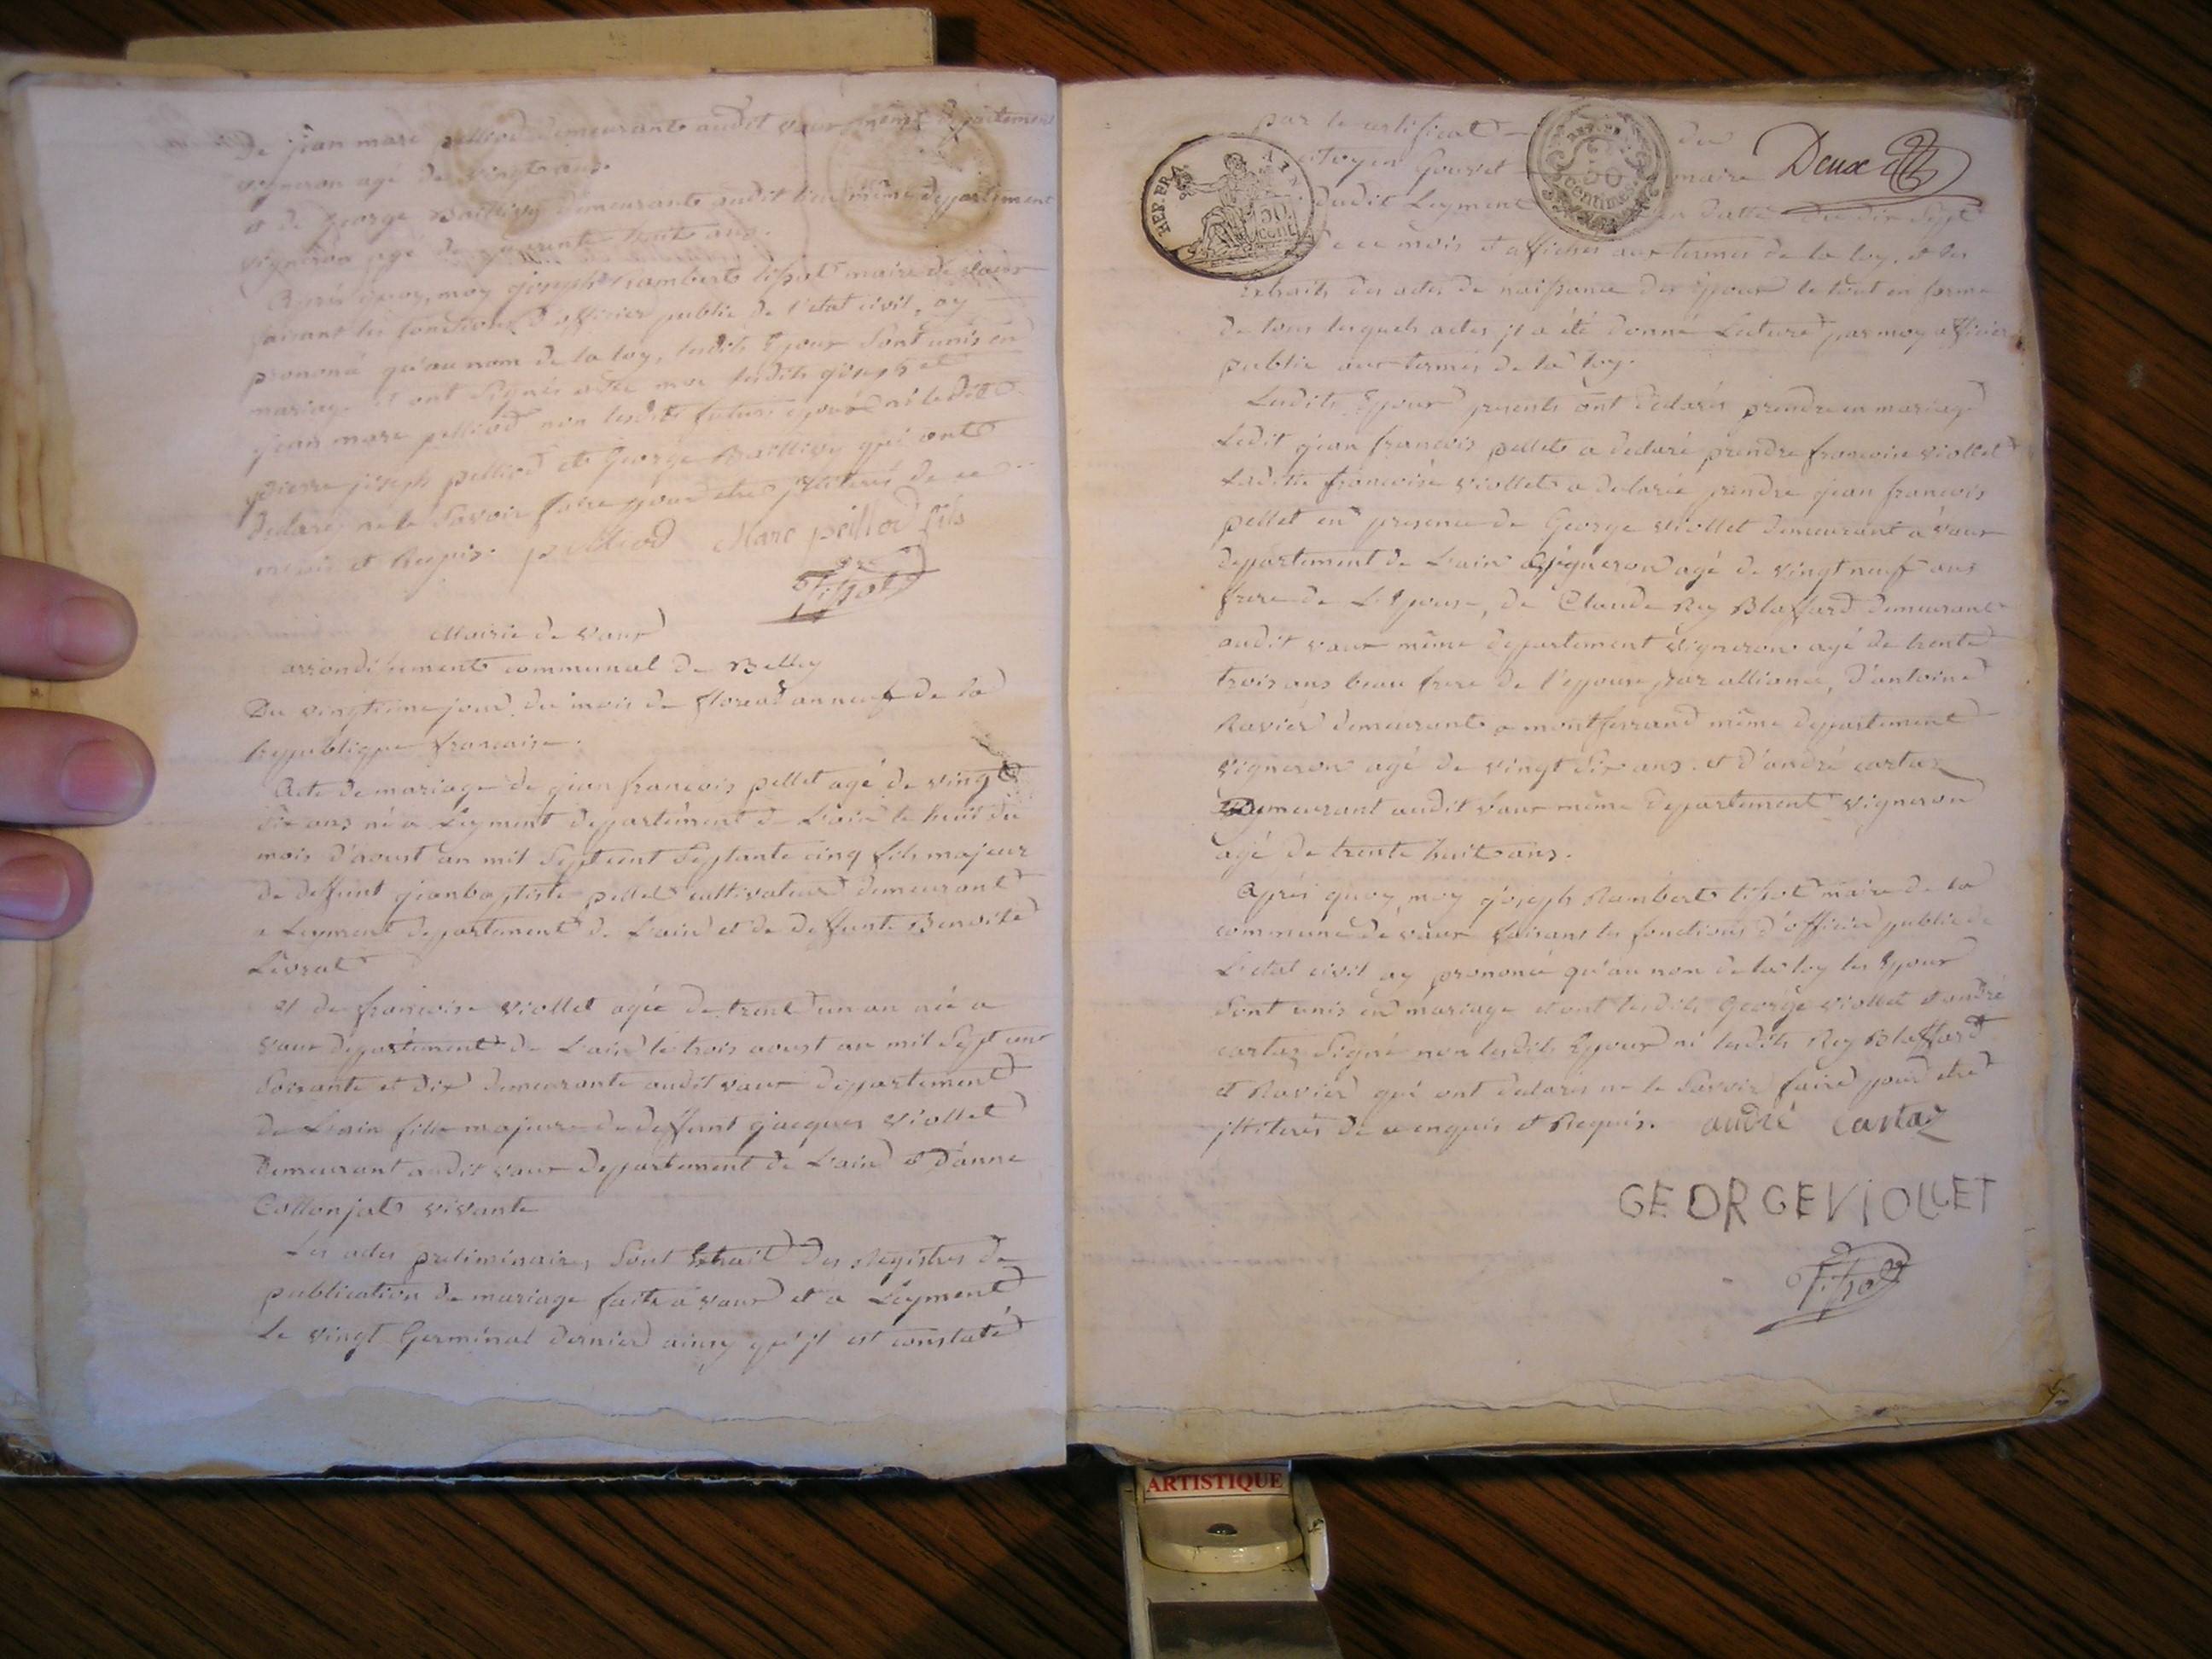 De jean marc pelliod demeurant audit vaux même departement
vigneron agé de vingt ans.
et de George Baillivy demeurant audit lieu même departement
vigneron agé de quarente huit ans.
Après quoy, moy joseph Rambert tissot maire de vaux
faisant les fonctions d'officier public de l'etat civil, ay
prononcé qu'au nom de la loy, lesdits Epoux sont unis en
mariage et ont signés avec moi lesdits joseph et
jean marc pelliod non lesdits futurs epoux ni ledit
pierre joseph pelliod et George Baillivy qui ont
declaré ne le savoir faire pour etre jlliterés de ce
enquis et Requis. pelliod Marc peillod fils
Tissot
Mairie de vaux
arrondissement communal de Belley
Du vingtieme jour du mois de floreal an neuf de la
Republique francaise.
Acte de mariage de jean francois pellet agé de vingt
six ans né a Leyment departement de L'ain le huit du
mois d'aoust an mil sept cent septante cinq fils majeur
de deffunt jean baptiste pellet cultivateur demeurant
a Leyment departement de L'ain et de deffunte Benoite
Levrat
Et de francoise viollet agée de trent un an née a
vaux departement de L'ain le trois aoust an mil sept cent
soixante et dix demeurante audit vaux departement
de L'ain fille majeure de deffunt jacques viollet
demeurant audit vaux departement de L'ain et D'anne
Collonjat vivante
Les actes preliminaires sont Extrait des Registres de
publication de mariage faite a vaux et a Leyment
Le vingt Germinal dernier ainsy qu'jl est constaté
par le certificat du
citoyen Gouvet maire
dudit Leyment en datte du dix sept
de ce mois et affichés aux termes de la loy. et des
Extraits des actes de naissance des Epoux le tout en forme
de tous lesquels actes jl a été donné Lecture par moy officier
public aux termes de la loy.
Lesdits Epoux presents ont declarés prendre en mariage
Ledit jean francois pellet a declaré prendre francoise viollet
Ladite francoise viollet a declarée prendre jean francois
pellet en presence de George viollet demeurant a vaux
departement de L'ain vigneron agé de vingt neuf ans
frere de L'Epouse, de Claude Rey Blaffard demeurant
audit vaux même departement vigneron agé de trente
trois ans beau frere de l'epouse par alliance, D'antoine
Ravier demeurant a montferrand même departement
vigneron agé de vingt dix ans. et d'andré cartaz
Demeurant audit vaux même departement vigneron
agé de trente huit ans.
Après quoy, moy joseph Rambert tissot maire de la
commune de vaux faisant les fonctions d'officier public de
L'etat civil ay prononcé qu'au nom de la loy les Epoux
sont unis en mariage et ont lesdits George viollet et andré
cartaz signé non lesdits Epoux ni lesdits Rey Blaffard
et Ravier qui ont declarés ne le savoir faire pour etre
jlliterés de ce enquis et Requis. andré Cartaz
GEORGE VIOLLET
Tissot
Deux
REP. FRA.
AIN
50 cent.
50 centimes
ARTISTIQUE